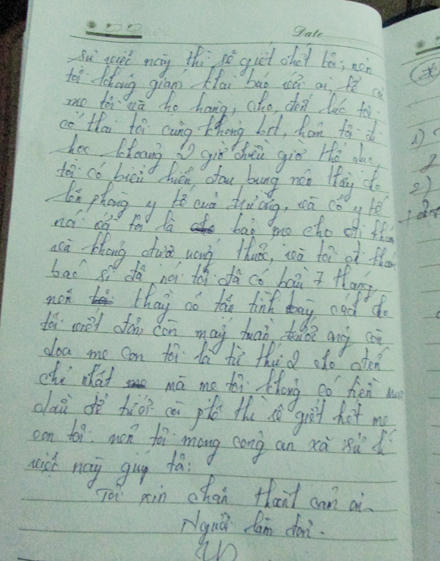 Date
sự việc này thì sẽ giết chết tôi, nên
tôi không giám khai báo với ai, kể cả
mẹ tôi và họ hàng, cho đến lúc tôi
có thai tôi cũng không biết, hôm tôi đi
học khoảng 2 giờ chiều giờ thể dục,
tôi có biểu hiện đau bụng nên thầy cho
lên phòng y tế của trường, và cô y tế
nói với tôi là bảo mẹ cho đi khám
và không được uống thuốc, và tôi đi khám
bác sĩ đã nói tôi đã có bầu 7 tháng
nên thầy cô tận tình bày cách cho
tôi viết đơn, còn mấy tuần trước ông còn
dọa mẹ con tôi là từ thứ 2 cho đến
chủ nhật mà mẹ tôi không có tiền mua
dầu để tưới cà phê thì sẽ giết hết mẹ
con tôi. nên tôi mong công an xã xử lí
việc này giúp tôi:
Tôi xin chân thành cảm ơn.
Người làm đơn.